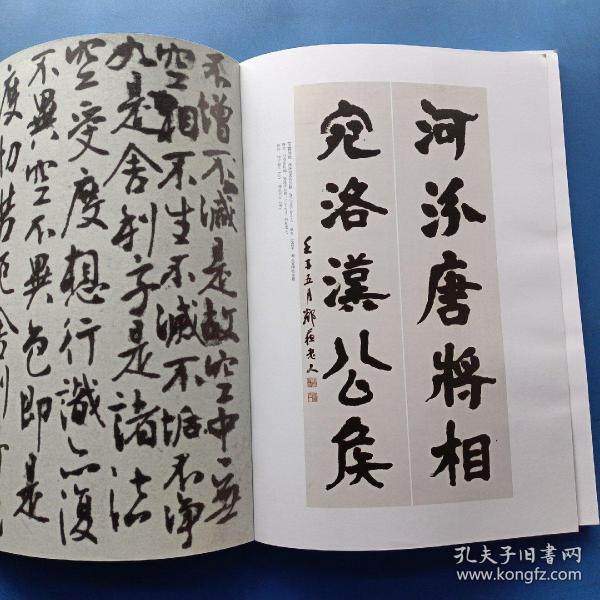 河汾唐將相
宛洛漢公侯
壬子五月鄰蘇老人
不增不減是故空中無
空相不生不滅不垢不淨
如是舍利子是諸法
空受度想行識亦復
不異空不異色即是
度切苦厄舍利
孔夫子旧书网
www.kongfz.com